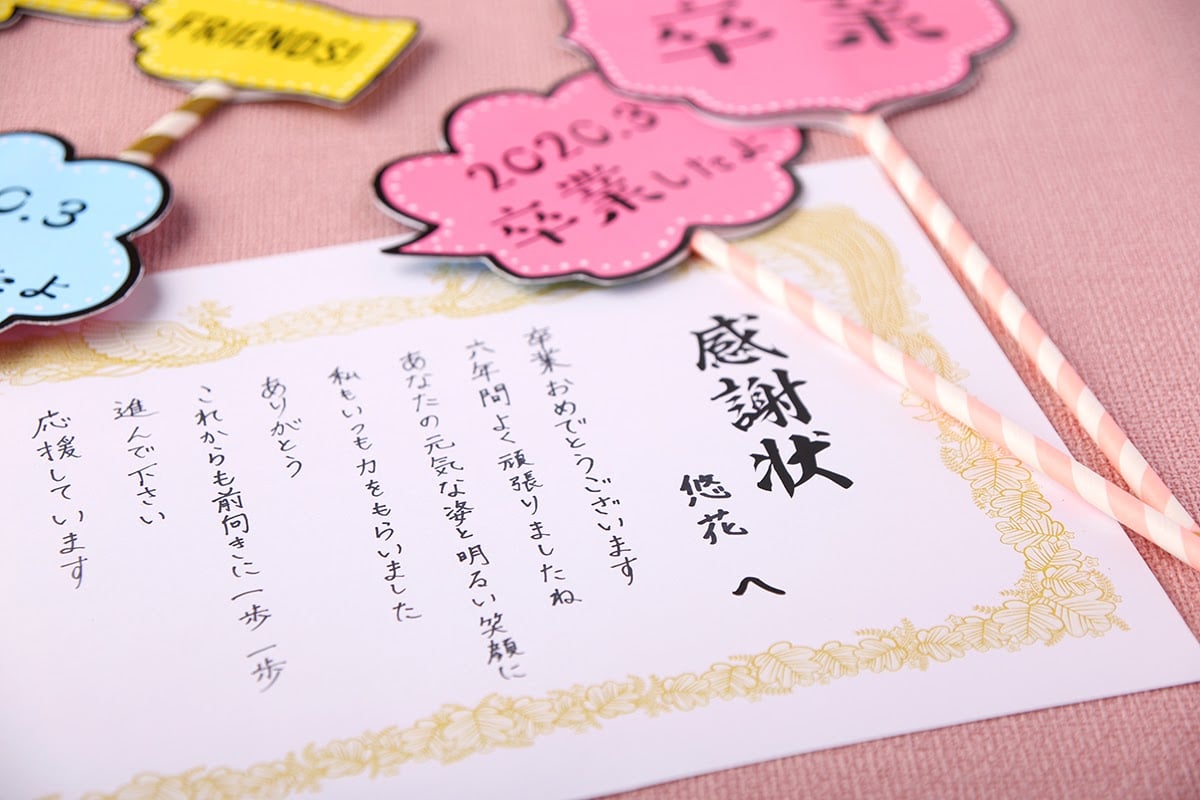 FRIENDS!
卒業
2020.3
卒業したよ
0.3
たよ
感謝状
悠花 へ
卒業おめでとうございます
六年間よく頑張りましたね
あなたの元気な姿と明るい笑顔に
私もいつも力をもらいました
ありがとう
これからも前向きに一歩一歩
進んで下さい
応援しています